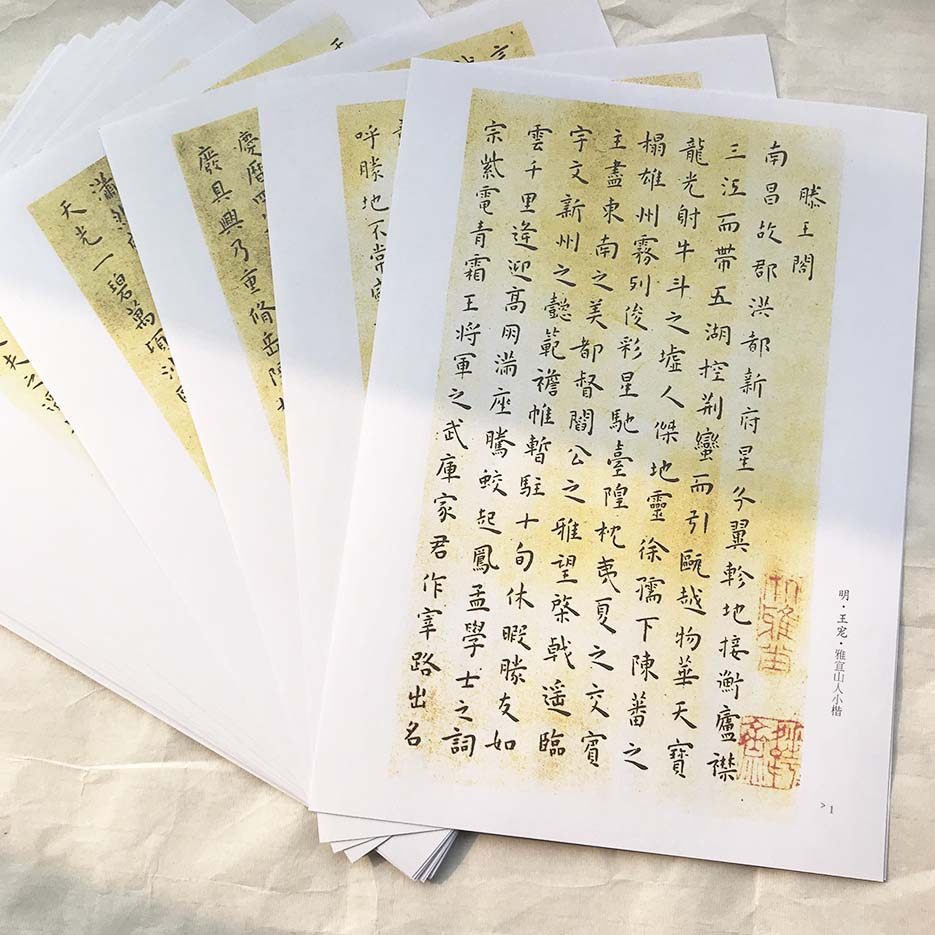 滕王閣
南昌故郡洪都新府星分翼軫地接衡廬襟
三江而帶五湖控荆蠻而引甌越物華天寶
龍光射牛斗之墟人傑地靈徐孺下陳蕃之
榻雄州霧列俊彩星馳臺隍枕夷夏之交賓
主盡東南之美都督閻公之雅望棨戟遥臨
宇文新州之懿範襜帷暫駐十旬休暇勝友如
雲千里逢迎高朋滿座騰蛟起鳳孟學士之詞
宗紫電青霜王將軍之武庫家君作宰路出名
明·王宠·雅宜山人小楷
>1
呼勝地不常
慶曆
廢具興乃重脩岳
天光一碧萬頃沙
夫之